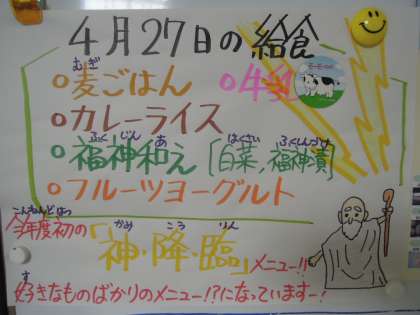 4月27日の給食
むぎ
○麦ごはん ○牛乳
○カレーライス
ふくじん あ はくさい ふくじんづけ
○福神和え〔白菜,福神漬〕
○フルーツヨーグルト
こんねんどはつ かみ こう りん
今年度初の「神・降・臨」メニュー!!
す
好きなものばかりのメニュー!?になっていますー!